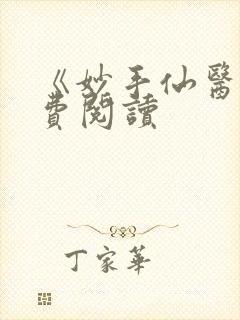 《妙手仙醫
費閱讀
丁家華